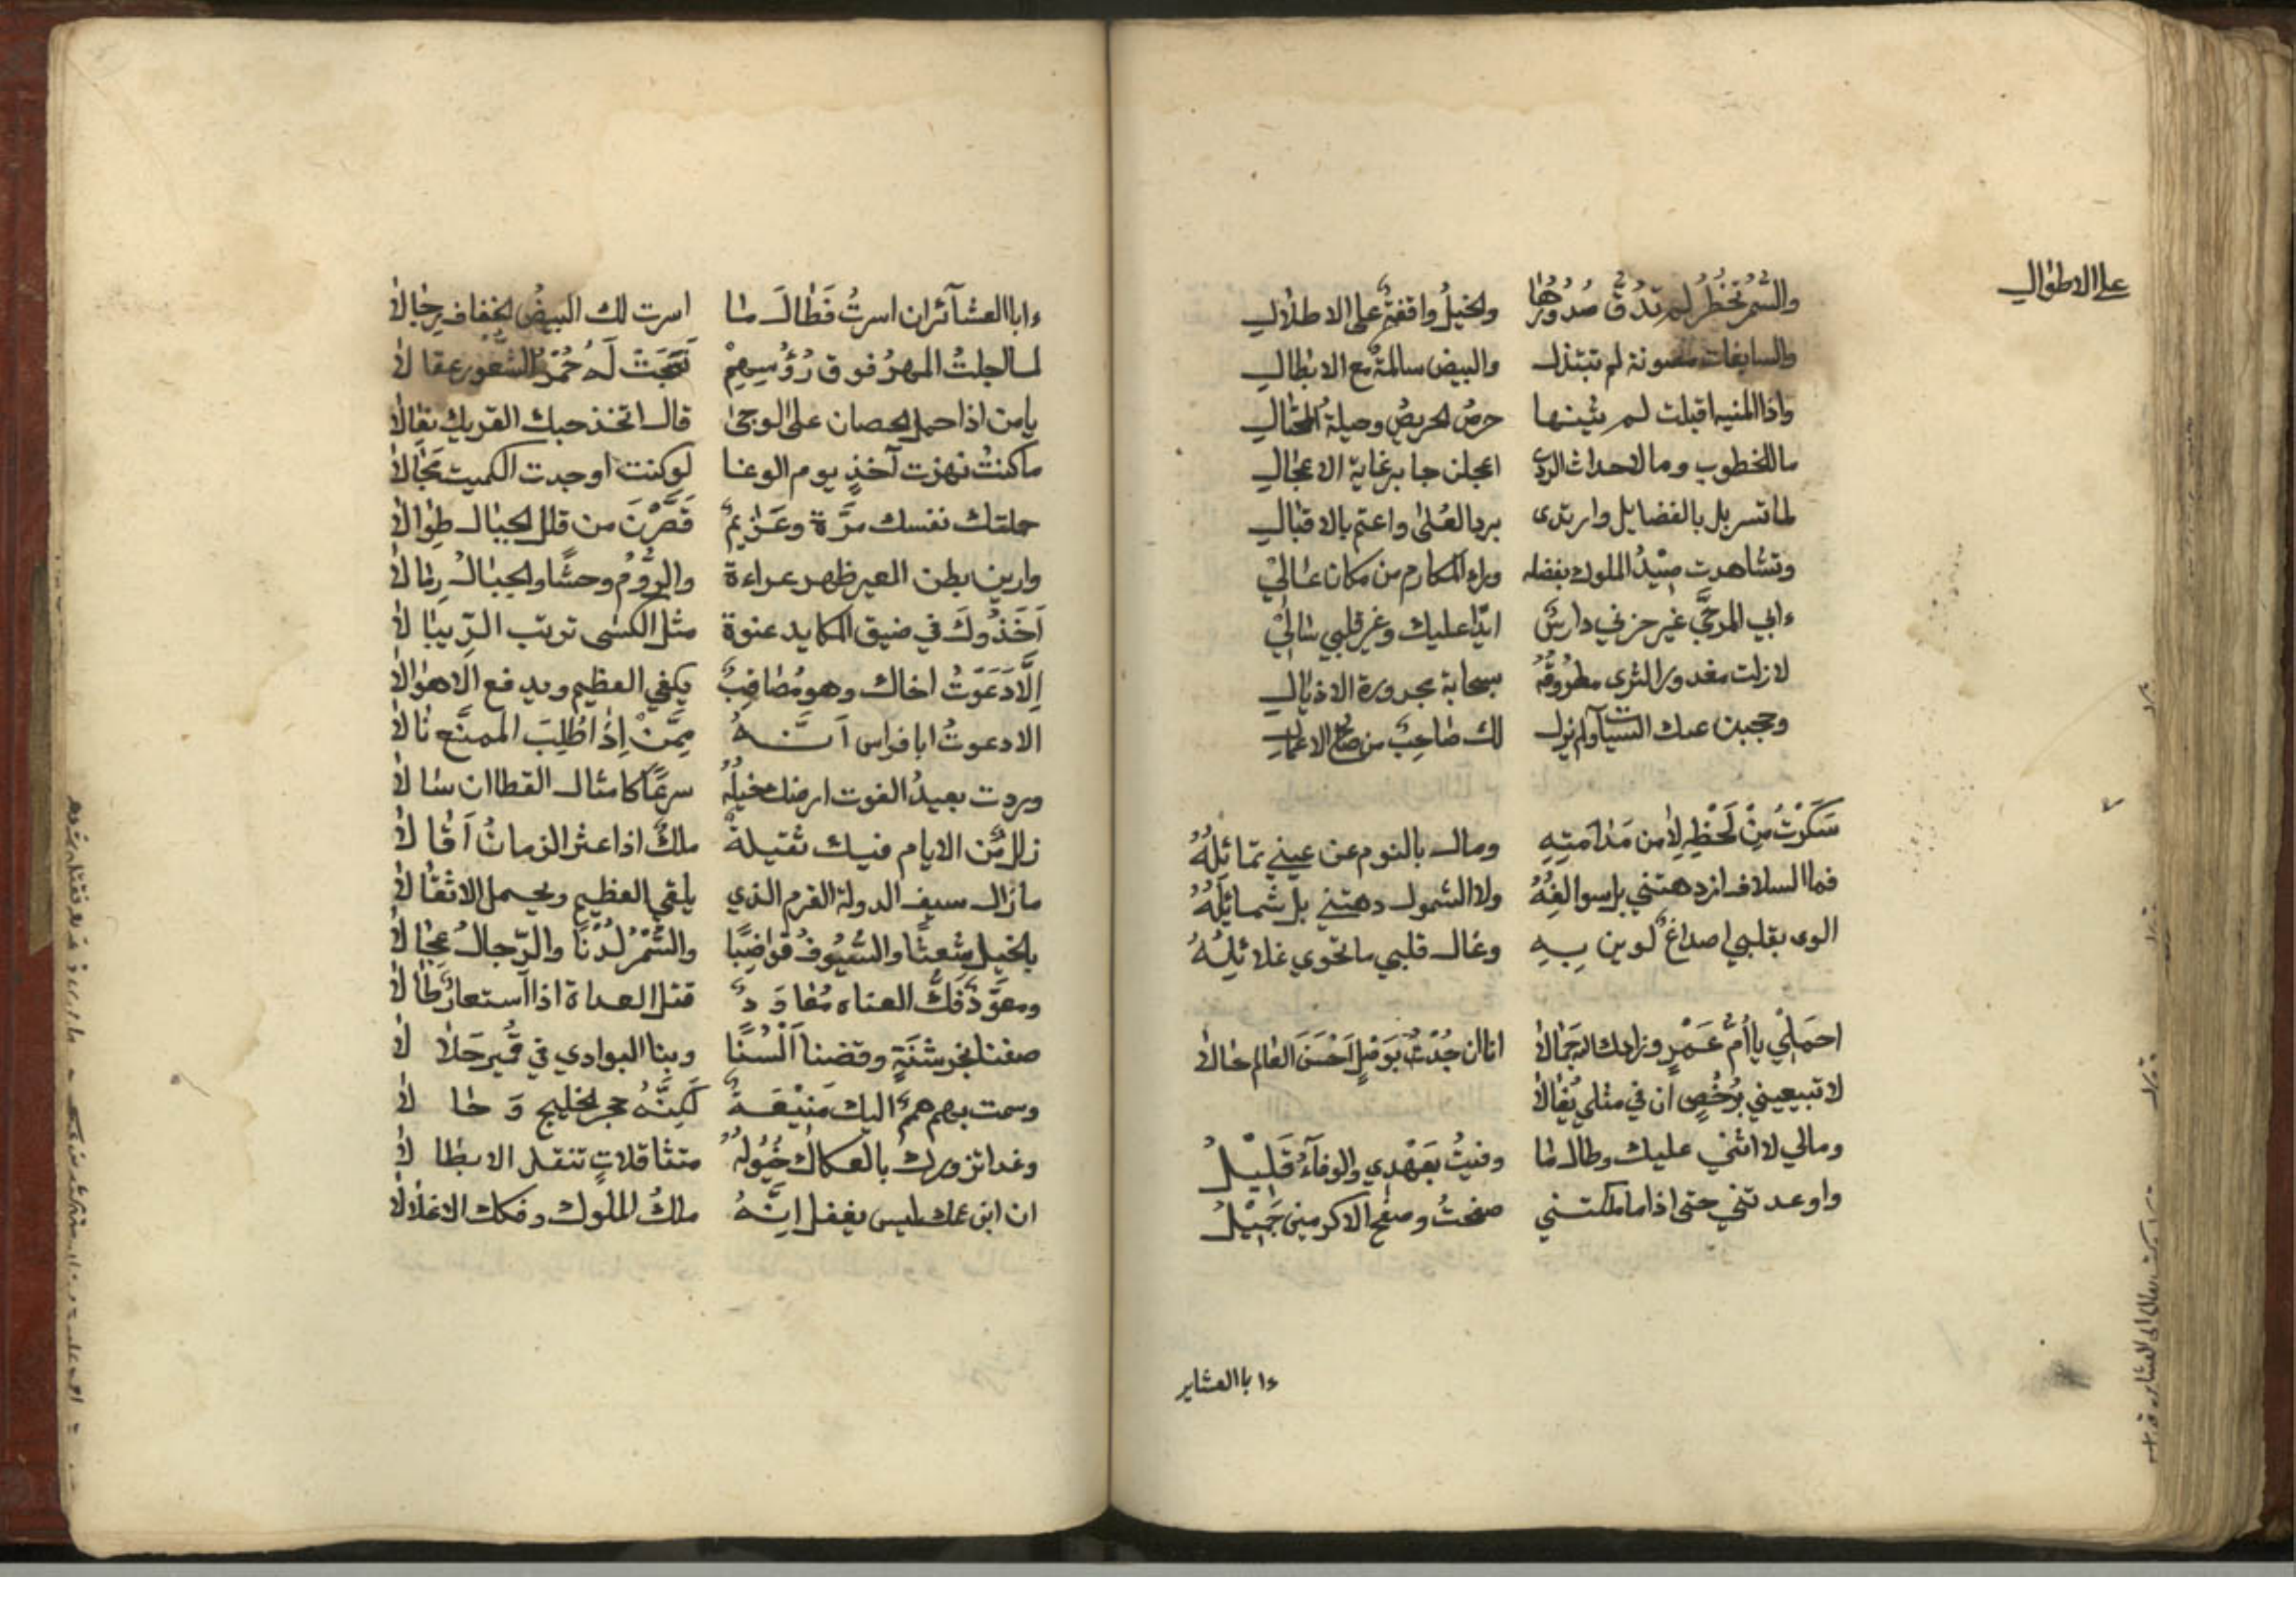 على الاطوال
والسُّمرُ تخطُرُ لم تدُقَّ صُدُورُها والخيلُ واقفةٌ على الاطلال
والسابغات مصونة لم تبتذل والبيض سالمةٌ مع الابطال
واذا المنيه اقبلت لم يثنها حرصُ الحريصِ وحيلةُ المحتال
ما للخطوب وما لاحداث الردى اعجلن جابر غاية الاعجال
لما تسربل بالفضايل وارتدى برد العُلى واعتم بالاقبال
وتشاهدت صِيْدُ الملوك بفضله وراى المكارم من مكان عالي
ءابي المرجَّى غير حزني دارسٌ ابدًا عليك وغير قلبي سالي
لازلت مغدور الثرى مطروقَةً بسحابة مجرورة الاذيال
وحجبن عنك السيآت ولم يزل لك صاحِبٌ من صالح الاعمال
سَكَرْتُ مِنْ لَحْظِهِ لا من مَدامَتِهِ ومال بالنوم عن عيني تمائلُهُ
فما السلاف ازدهتني بل سوالفُهُ ولا الشمول دهتني بل شمائلُهُ
الوى بقلبي اصداغٌ لوين بِهِ وغال قلبي ما تحوي غلائلُهُ
احمَلِي يا أُمَّ عَمْرٍ وزادك اله جَمَالا انا ان جُدْتُ بوَصْلٍ أحْسَنَ العالم حالا
لا تبيعيني برُخْصٍ ان في مثلي يُغالا
ومالي لا اثني عليك وطال ما وفيتُ بعَهْدِي والوفآءُ قَلِيْلُ
واوعدتني حتى اذا ما ملكتني صفحتُ وصفح الاكرمين جَمِيْلُ
ءابا العشاير
ءابا العشآئر ان اسرتُ فَطَالَ ما اسرت لك البيضُ الخفاف رِجَالا
لما اجلتُ المهرُ فوق رُؤُسِهِمْ نَسَجَتْ لَهُ حُمْرُ الشعُور عقالا
يا من اذا حمل الحصان على الوجى قال اتخذ حبك القريك نعالا
ما كنتُ نهزت آخذٍ يوم الوغا لو كنت اوجدت الكميت مَجَالا
حملتك نفسك مرَّة وعَزايمٌ قَصَّرْنَ من قلل الجبال طِوالا
وارين بطن العير ظهر عراءة والرُّومُ وحشًا والجبالُ رِمالا
أخَذُوكَ في ضيق المكايد عنوة مثل
اِلَّا دَعَوْتُ اخاك وهو مُصَاقِبٌ يكفي العظيم ويدفع الاهوالا
الا دعوتُ ابا فراس اَنَّهُ مِمَّنْ اِذا طُلِبَ الممنَّع نالا
وردت بعيدُ الفوت ارضك خيلُهُ سرعًا كامثال القطا ان سالا
زللٌ من الايام فيك ثقيلةٌ ملكٌ اذا عثر الزمانُ اَقالا
ما زال سيف الدولة القرم الذي يلقى العظيم ويحمل الاثقالا
بالخيل شُعثًا والسُّيُوفُ قواضِبًا والسُّمْرُ لُدْنًا والرّجالُ عِجَالا
ومعوّدٌ فَكَّ العناه مُعَاوِدٌ قتل العداة اذا استعار
صفنا بخرشَنَةٍ وقضنا اَلْسُنًا وبنا البوادي في قُمَير حَلالا
وسمت بهم هممٌ اليك مَنِيْعَةٌ لكِنَّهُ حجر الخليج وَحالا
وغدا تزورك بالعكاك خُيُولُهُ متثاقلاتٍ تنقل الابطالا
ان ابن عمك ليس يغفل اِنَّهُ ملكُ الملوك وفكك الاغلالا